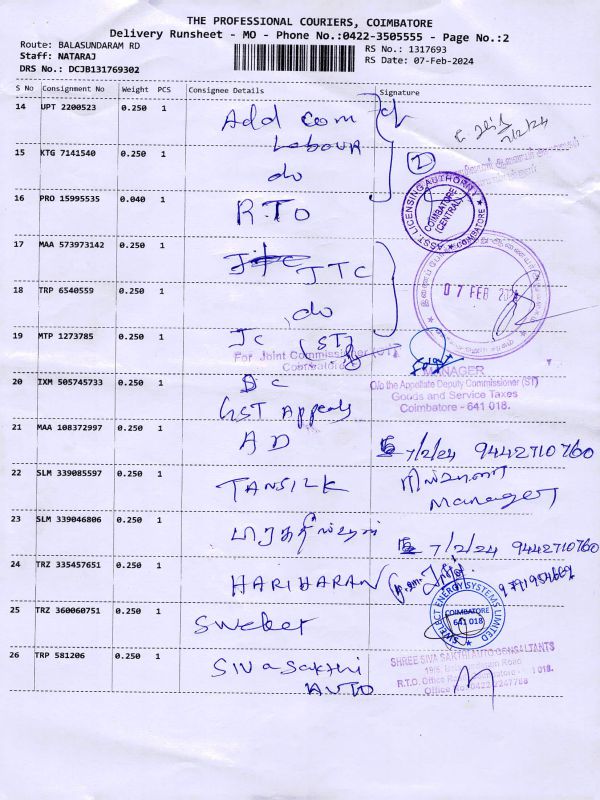 THE PROFESSIONAL COURIERS, COIMBATORE
Delivery Runsheet - MO - Phone No.:0422-3505555 - Page No.:2
Route: BALASUNDARAM RD
RS No.: 1317693
Staff: NATARAJ
RS Date: 07-Feb-2024
DRS No.: DCJB131769302
S No Consignment No Weight PCS Consignee Details Signature
14 UPT 2200523 0.250 1 Add com
Labour
7/2/24
15 KTG 7141540 0.250 1 do
2
16 PRO 15995535 0.040 1 RTO
ASST LICENSING AUTHORITY
COIMBATORE (CENTRAL)
COIMBATORE
17 MAA 573973142 0.250 1 JTC
07 FEB 202
18 TRP 6540559 0.250 1 do
19 MTP 1273785 0.250 1 JC (ST)
For Joint Commissioner (CT)
Coimbatore
MANAGER
20 IXM 505745733 0.250 1 DC
GST Appeals
O/o the Appellate Deputy Commissioner (ST)
Goods and Service Taxes
Coimbatore - 641 018.
21 MAA 108372997 0.250 1 AD
7/2/24 9442710760
22 SLM 339085597 0.250 1 TANSILK
Manager
23 SLM 339046806 0.250 1
7/2/24 9442710760
24 TRZ 335457651 0.250 1 HARIHARAN
25 TRZ 360060751 0.250 1 Swelect
SWELECT ENERGY SYSTEMS LIMITED
COIMBATORE
641 018
26 TRP 581206 0.250 1 SIVasakthi
AUTO
SHREE SIVA SAKTHI AUTO CONSULTANTS
Road
R.T.O. Office Coimbatore - 018.
Office No: 0422 2247788